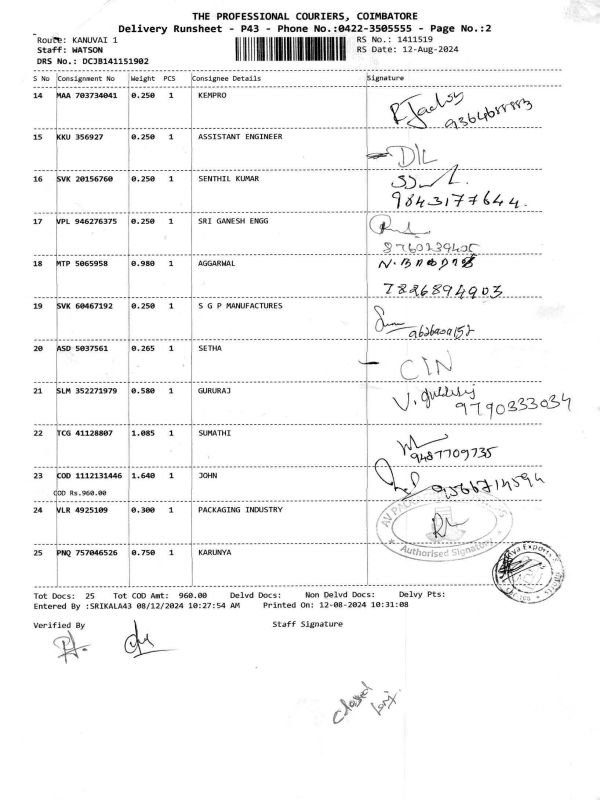 THE PROFESSIONAL COURIERS, COIMBATORE
Delivery Runsheet - P43 - Phone No.:0422-3505555 - Page No.:2
Route: KANUVAI 1 RS No.: 1411519
Staff: WATSON RS Date: 12-Aug-2024
DRS No.: DCJB141151902
S No Consignment No Weight PCS Consignee Details Signature
14 MAA 703734041 0.250 1 KEMPRO
15 KKU 356927 0.250 1 ASSISTANT ENGINEER
D/L
16 SVK 20156760 0.250 1 SENTHIL KUMAR
9843177644.
17 VPL 946276375 0.250 1 SRI GANESH ENGG
8760239405
18 MTP 5065958 0.980 1 AGGARWAL
7826894903
19 SVK 60467192 0.250 1 S G P MANUFACTURES
20 ASD 5037561 0.265 1 SETHA
CIN
21 SLM 352271979 0.580 1 GURURAJ
9790333034
22 TCG 41128807 1.085 1 SUMATHI
9487709735
23 COD 1112131446 1.640 1 JOHN
COD Rs.960.00
9566714594
24 VLR 4925109 0.300 1 PACKAGING INDUSTRY
Authorised Signatory
25 PNQ 757046526 0.750 1 KARUNYA
Tot Docs: 25 Tot COD Amt: 960.00 Delvd Docs: Non Delvd Docs: Delvy Pts:
Entered By :SRIKALA43 08/12/2024 10:27:54 AM Printed On: 12-08-2024 10:31:08
Verified By Staff Signature